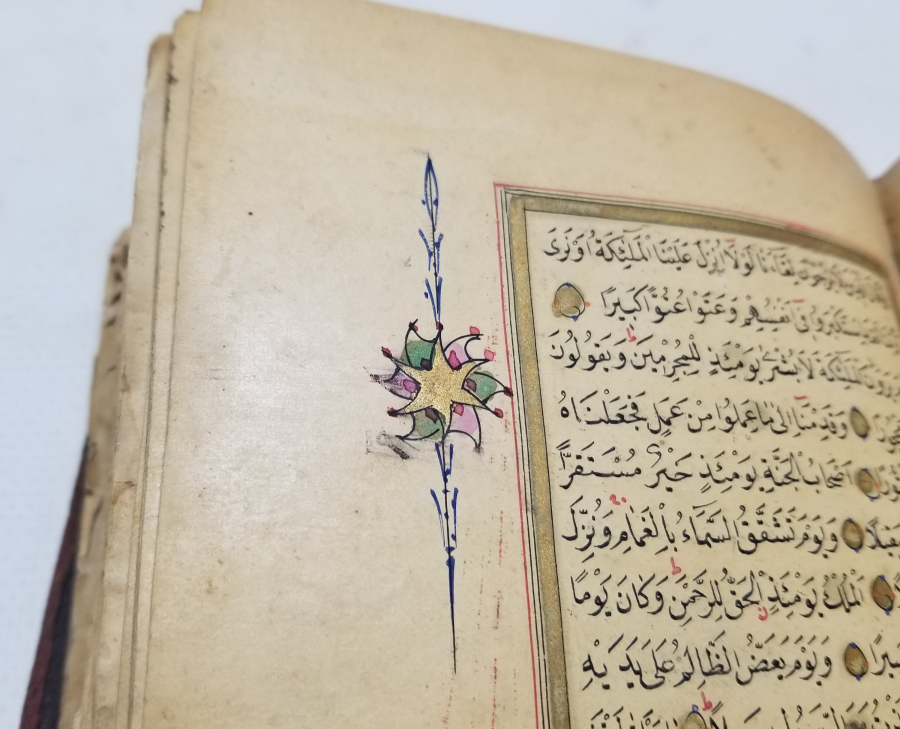 لِقَاءَنَا لَوْلَا اُنْزِلَ عَلَيْنَا الْمَلٰئِكَةُ اَوْ نَرٰى
اسْتَكْبَرُوا فِى اَنْفُسِهِمْ وَعَتَوْا عُتُوًّا كَبِيرًا
الْمَلٰئِكَةَ لَا بُشْرٰى يَوْمَئِذٍ لِلْمُجْرِمِينَ وَيَقُولُونَ
وَقَدِمْنَا اِلٰى مَا عَمِلُوا مِنْ عَمَلٍ فَجَعَلْنَاهُ
اَصْحَابُ الْجَنَّةِ يَوْمَئِذٍ خَيْرٌ مُسْتَقَرًّا
وَيَوْمَ تَشَقَّقُ السَّمَاءُ بِالْغَمَامِ وَنُزِّلَ
اَلْمُلْكُ يَوْمَئِذٍ الْحَقُّ لِلرَّحْمٰنِ وَكَانَ يَوْمًا
وَيَوْمَ يَعَضُّ الظَّالِمُ عَلٰى يَدَيْهِ